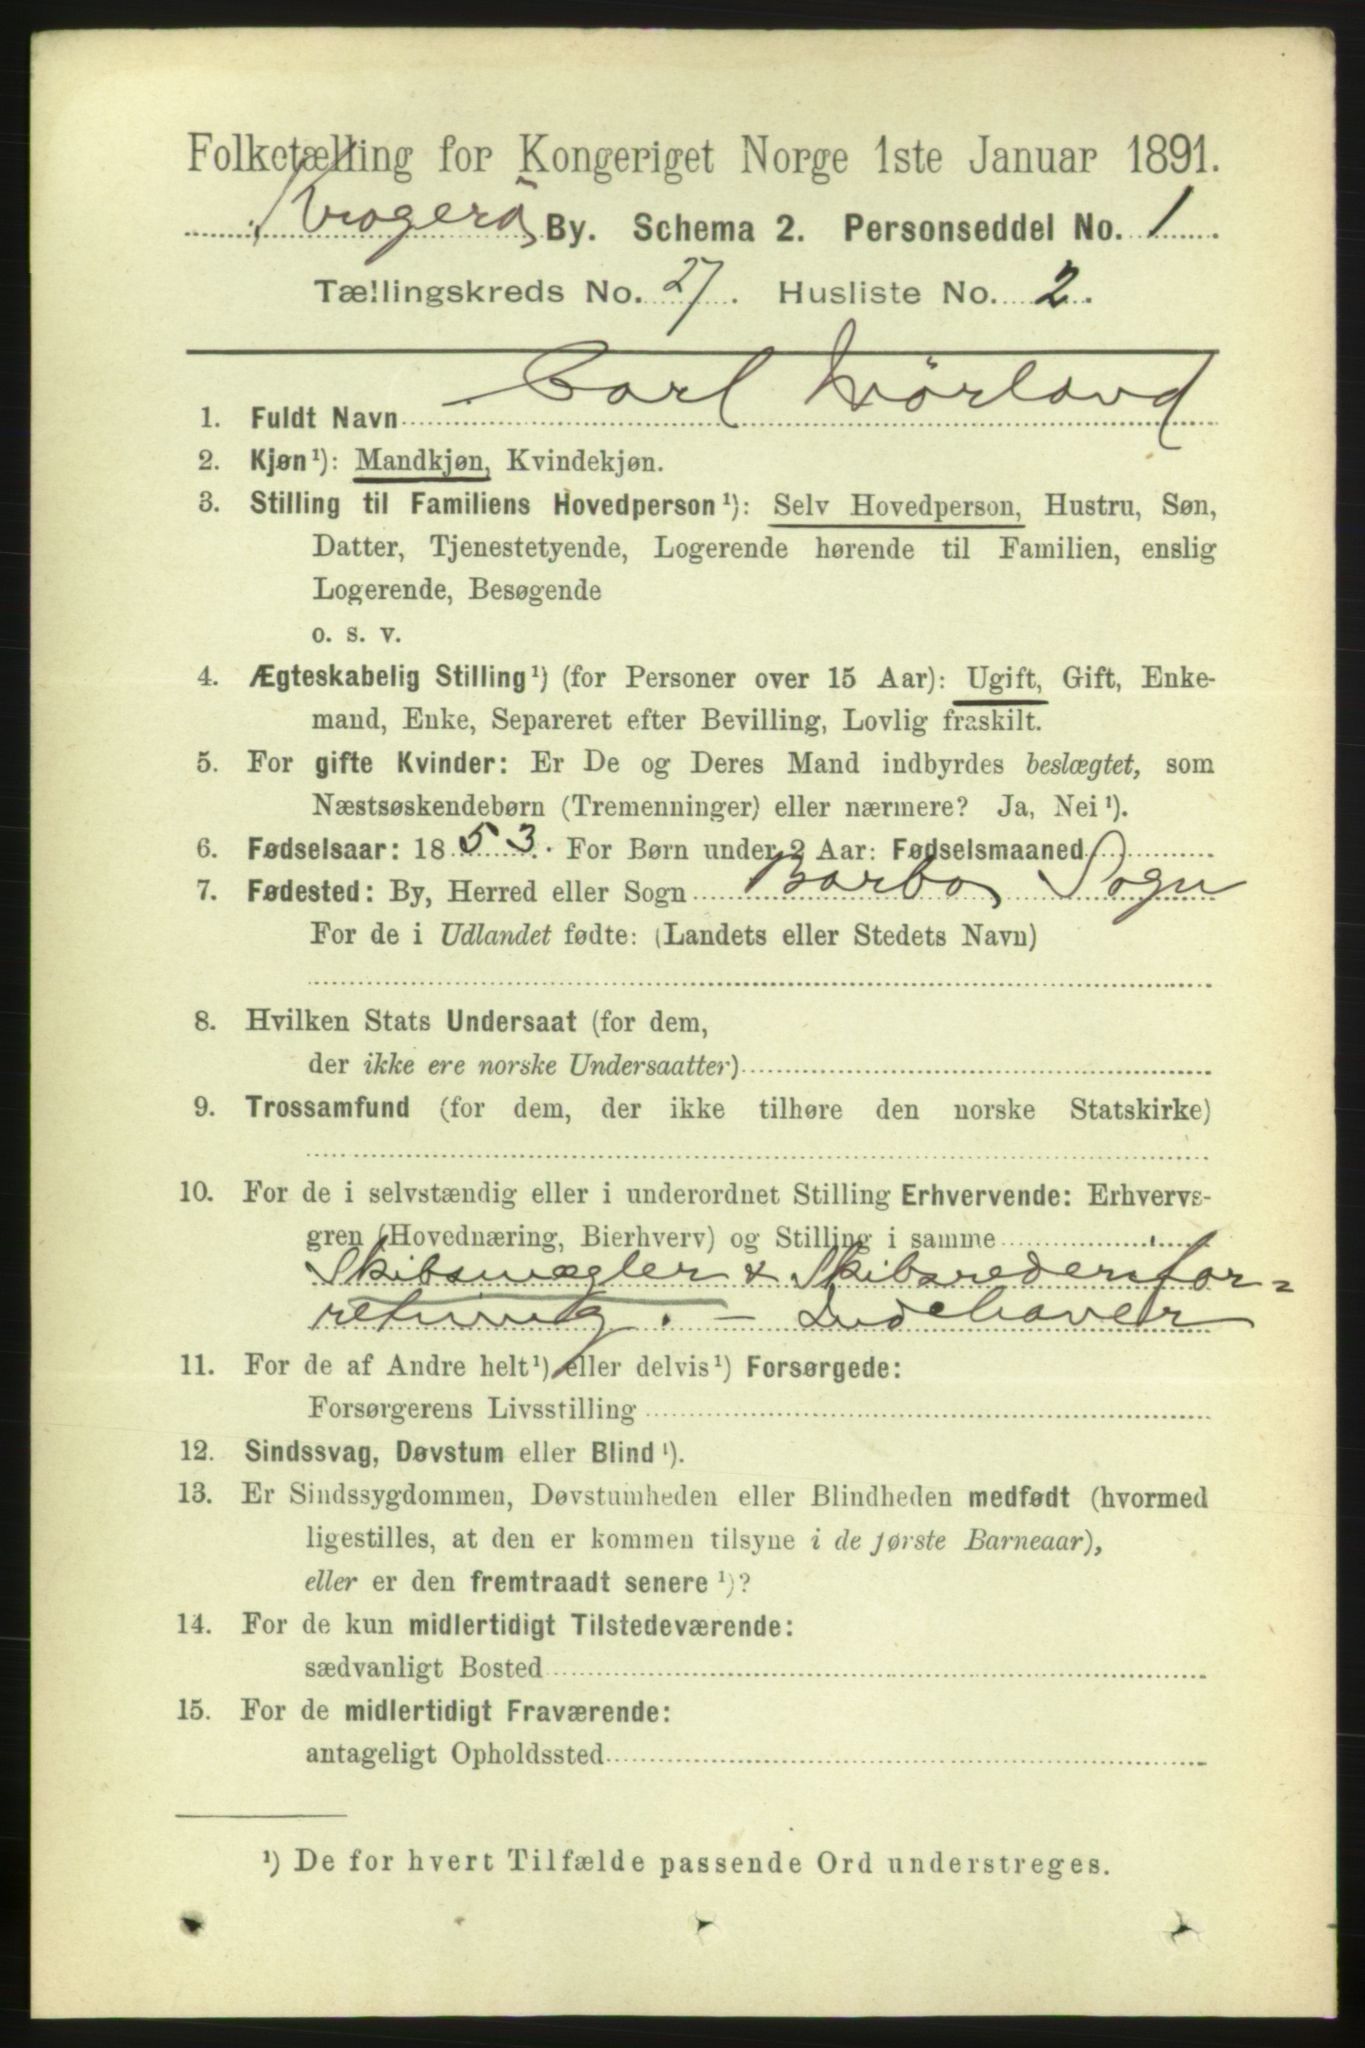 Folketælling for Kongeriget Norge 1ste Januar 1891.
Kragerø By. Schema 2. Personseddel No. 1.
Tællingskreds No. 27. Husliste No. 2.
1. Fuldt Navn Carl Mörland
2. Kjøn¹): Mandkjøn, Kvindekjøn.
3. Stilling til Familiens Hovedperson¹): Selv Hovedperson, Hustru, Søn,
Datter, Tjenestetyende, Logerende hørende til Familien, enslig
Logerende, Besøgende
o. s. v.
4. Ægteskabelig Stilling¹) (for Personer over 15 Aar): Ugift, Gift, Enke-
mand, Enke, Separeret efter Bevilling, Lovlig fraskilt.
5. For gifte Kvinder: Er De og Deres Mand indbyrdes beslægtet, som
Næstsøskendebørn (Tremenninger) eller nærmere? Ja, Nei¹).
6. Fødselsaar: 1853. For Børn under 2 Aar: Fødselsmaaned
7. Fødested: By, Herred eller Sogn Barbo Sogn
For de i Udlandet fødte: (Landets eller Stedets Navn)
8. Hvilken Stats Undersaat (for dem,
der ikke ere norske Undersaatter)
9. Trossamfund (for dem, der ikke tilhøre den norske Statskirke)
10. For de i selvstændig eller i underordnet Stilling Erhvervende: Erhvervs-
gren (Hovednæring, Bierhverv) og Stilling i samme
Skibsmægler & Skibsrederifor=
retning. - Indehaver
11. For de af Andre helt¹) eller delvis¹) Forsørgede:
Forsørgerens Livsstilling
12. Sindssvag, Døvstum eller Blind¹).
13. Er Sindssygdommen, Døvstumheden eller Blindheden medfødt (hvormed
ligestilles, at den er kommen tilsyne i de første Barneaar),
eller er den fremtraadt senere¹)?
14. For de kun midlertidigt Tilstedeværende:
sædvanligt Bosted
15. For de midlertidigt Fraværende:
antageligt Opholdssted
¹) De for hvert Tilfælde passende Ord understreges.